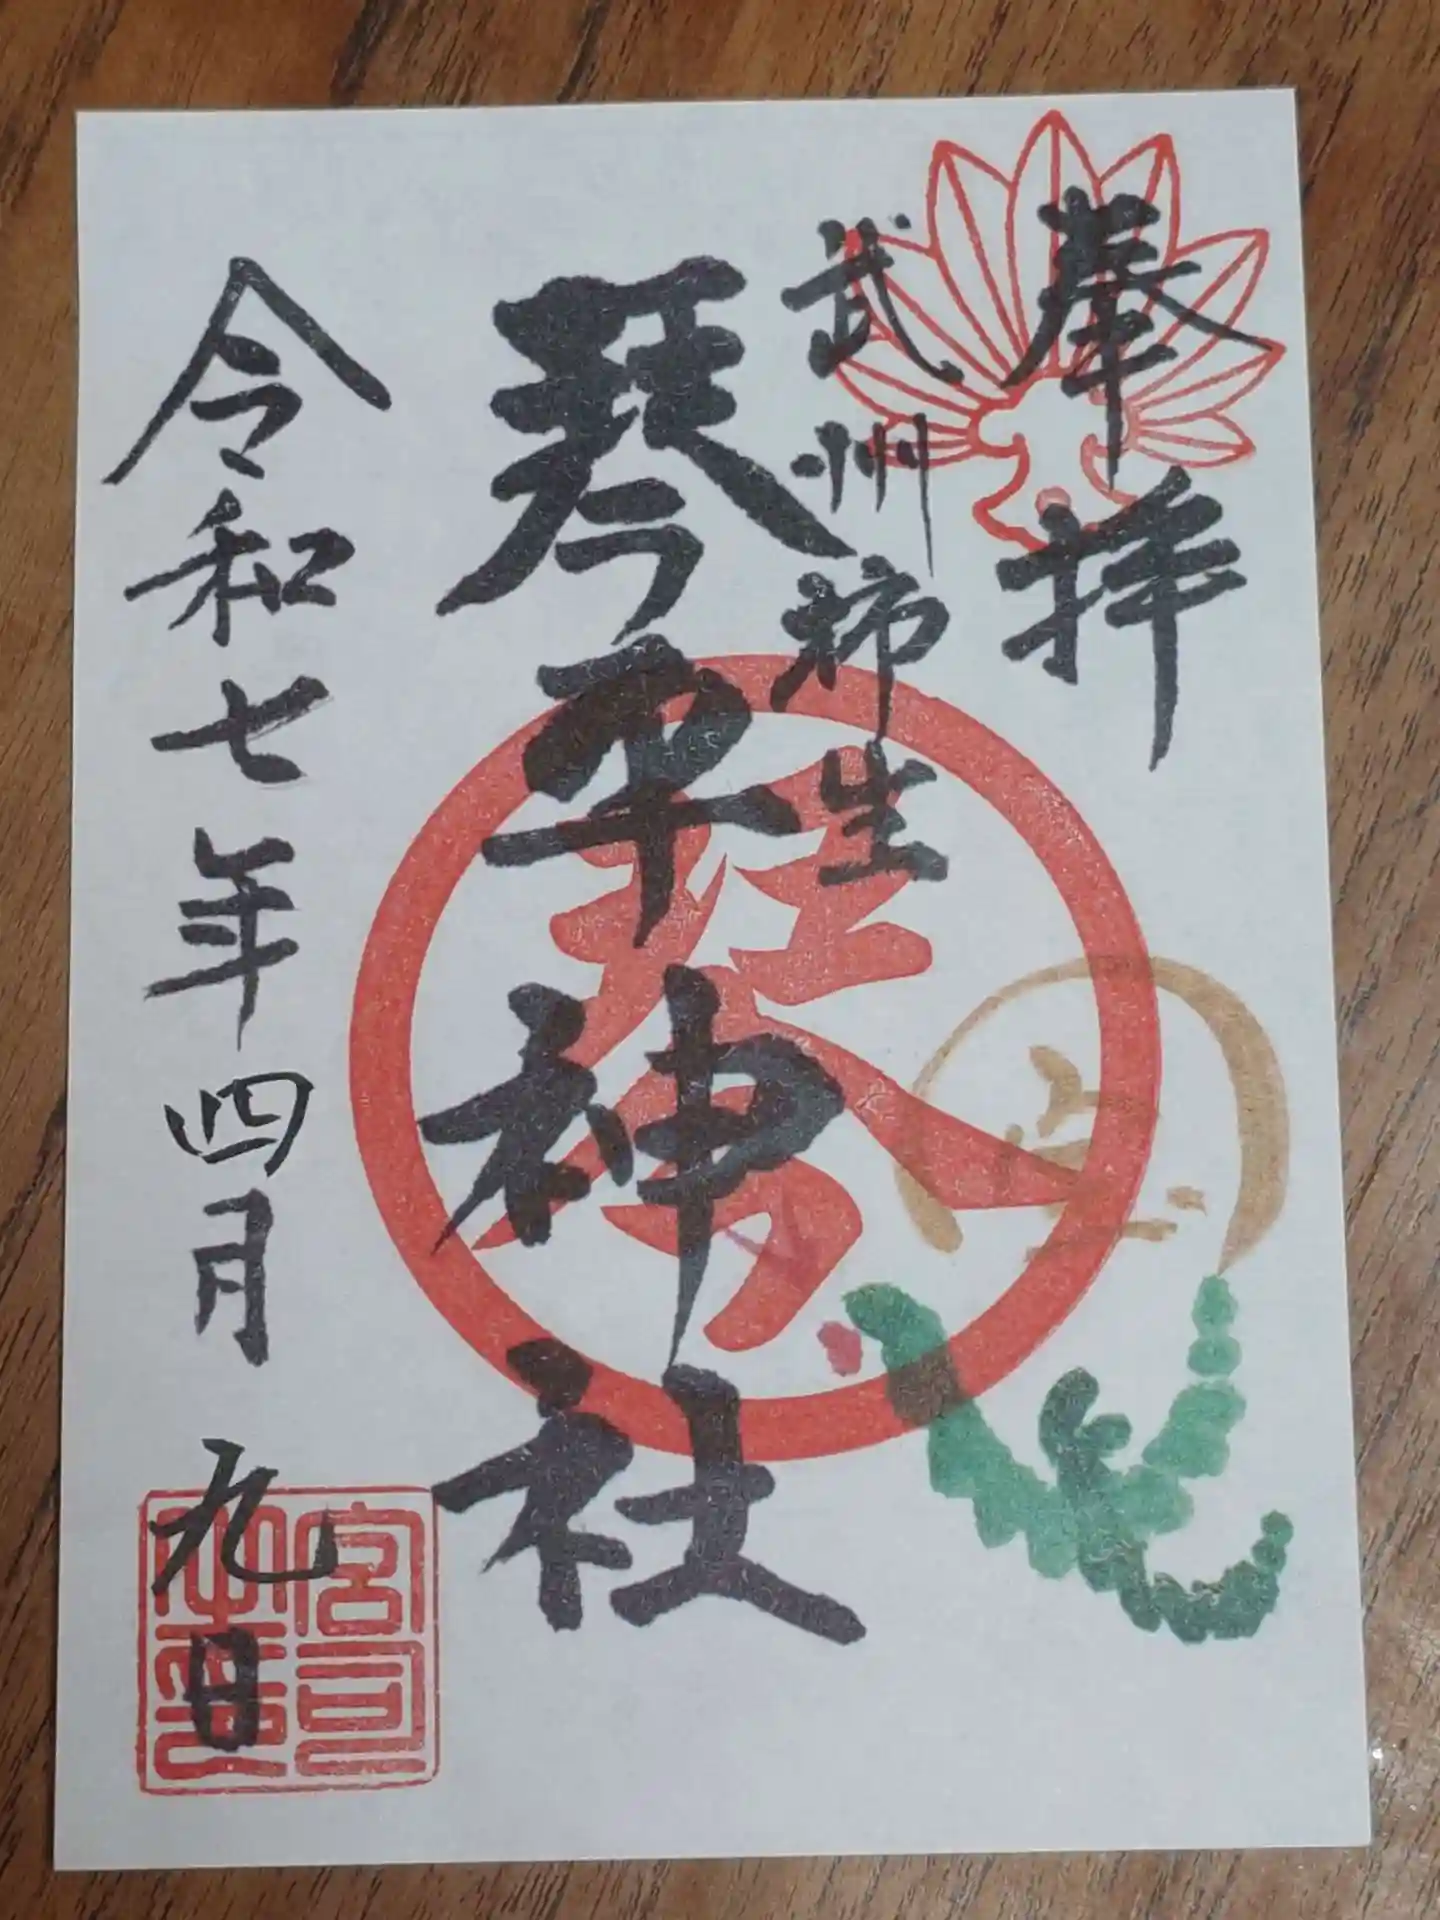 奉拝
武州柿生
琴平神社
令和七年四月九日
琴
宮司